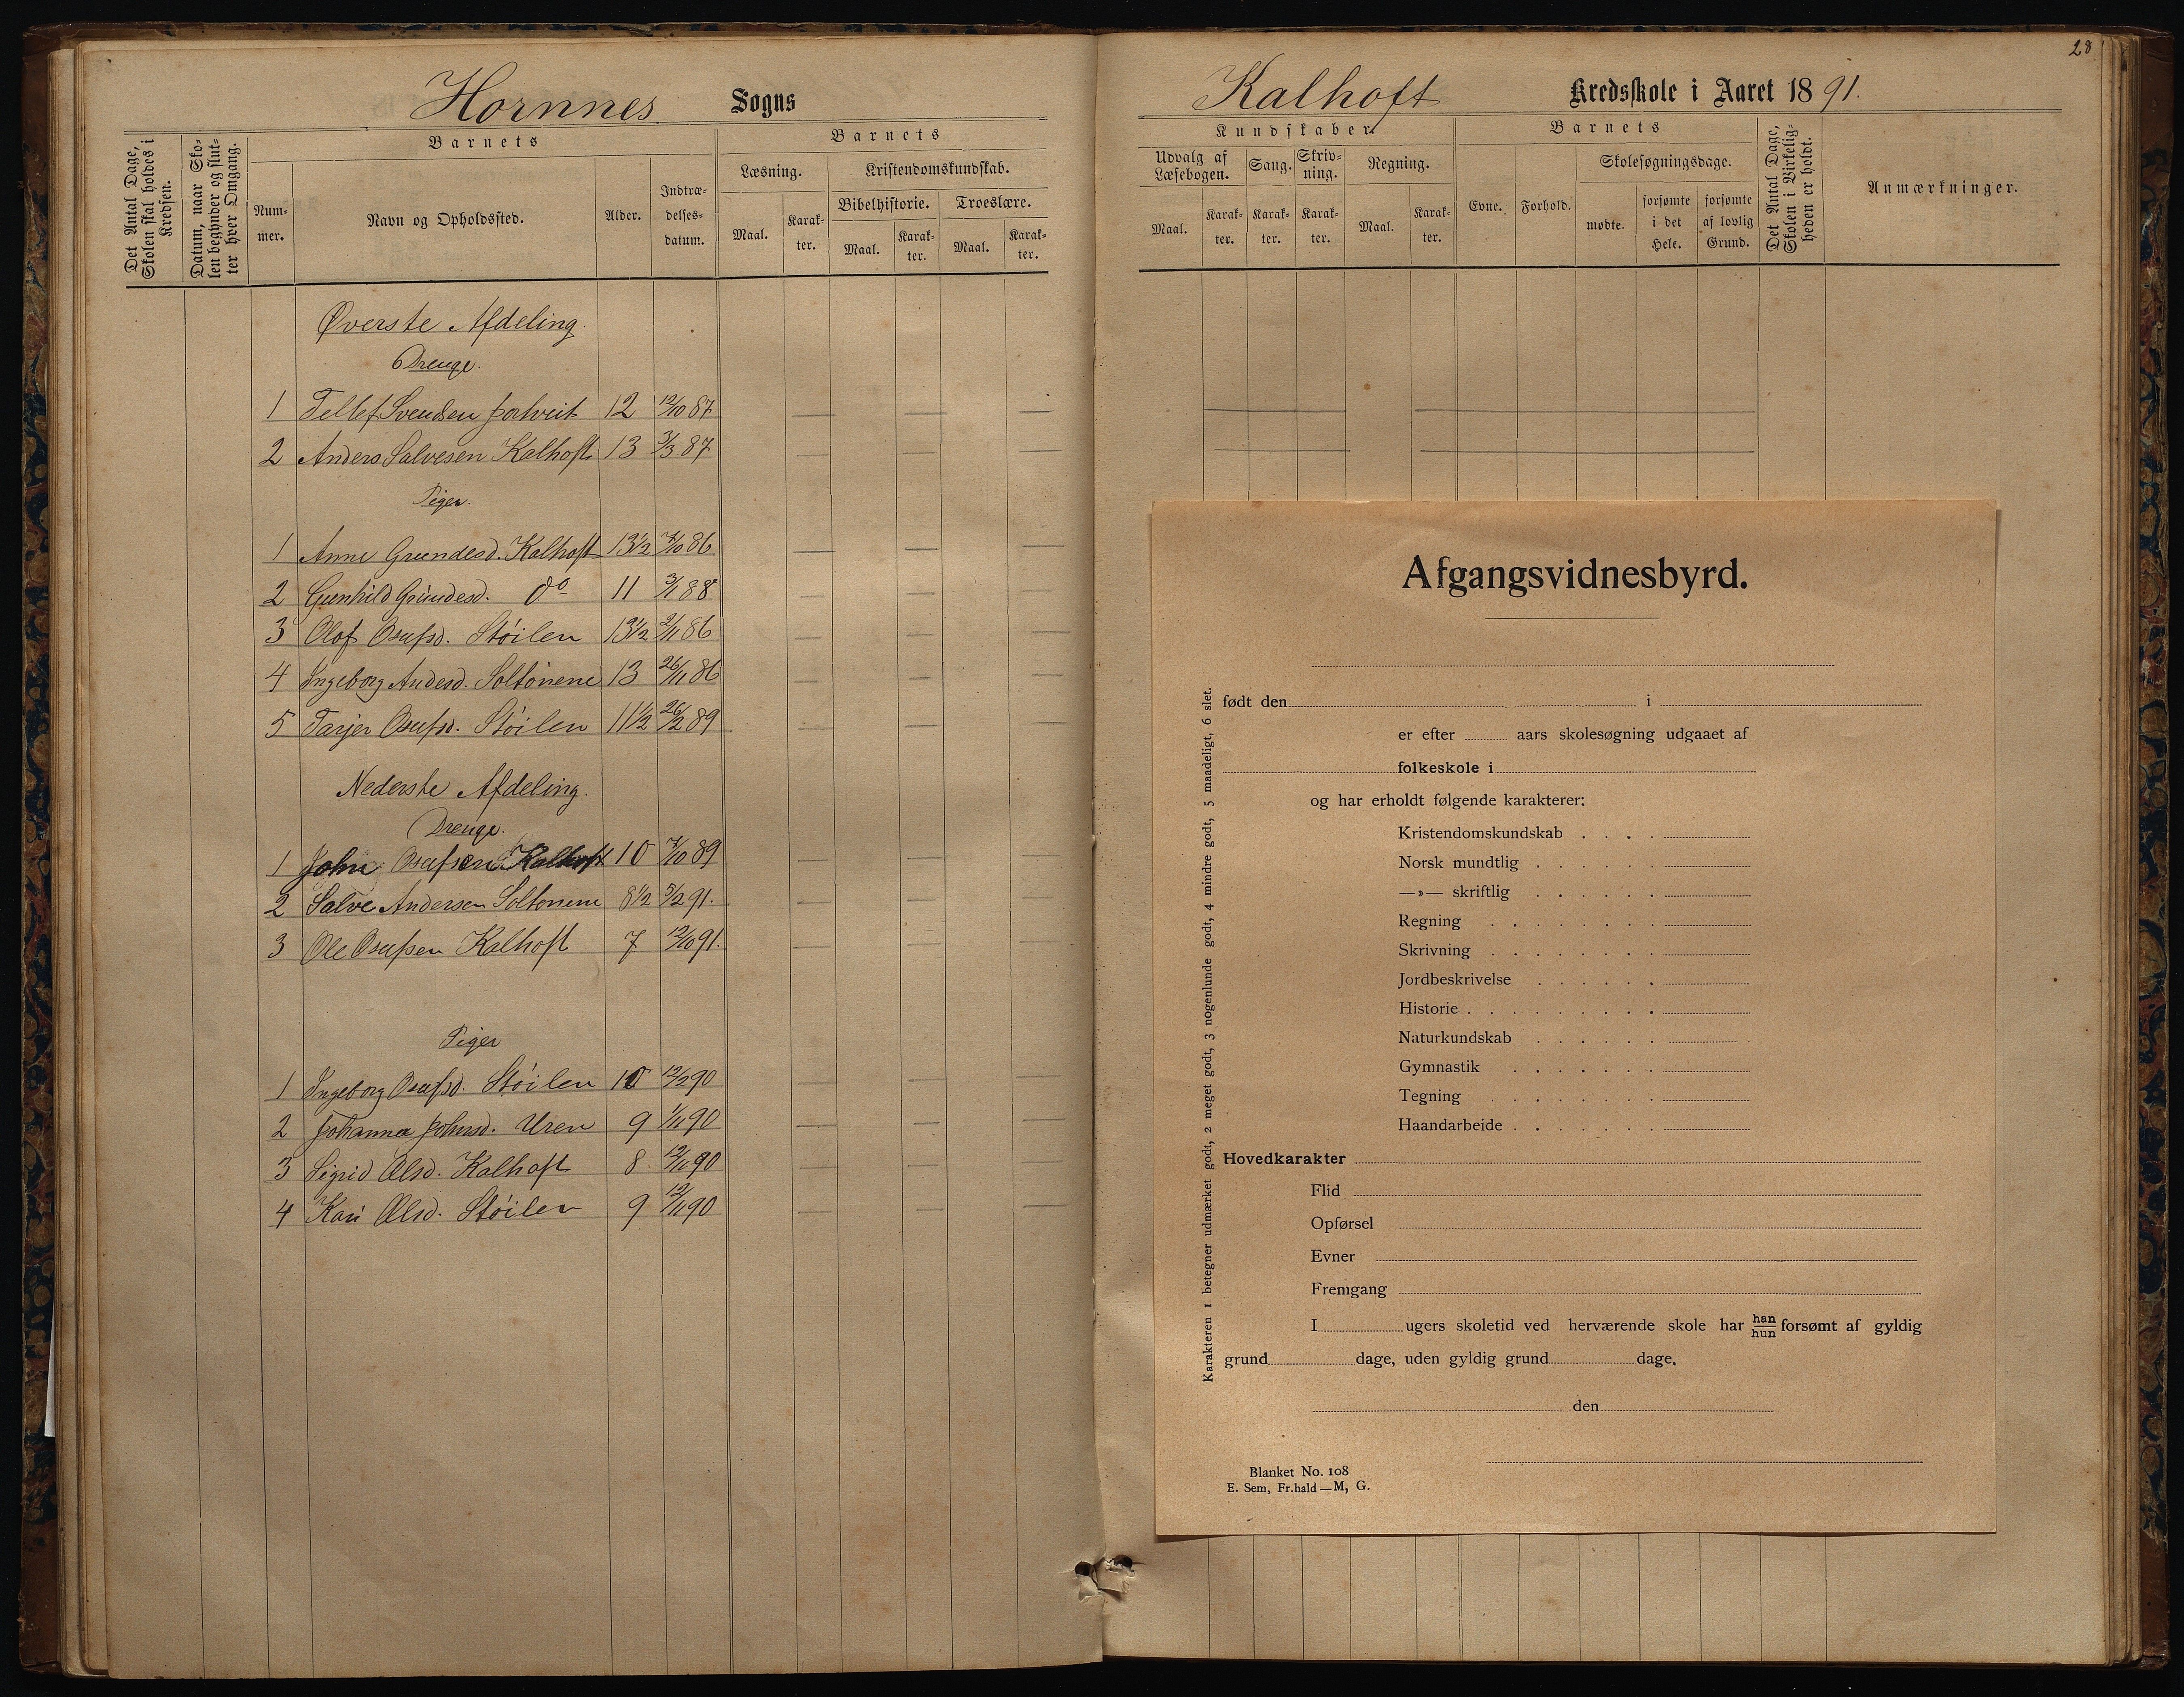 28
Hornnes Sogns
Kalhoft Kredsskole i Aaret 1891.
Det Antal Dage, Skolen skal holdes i Kredsen.
Datum, naar Skolen begynder og slutter hver Omgang.
Barnets
Nummer.
Navn og Opholdssted.
Alder.
Indtrædelsesdatum.
Barnets
Læsning.
Maal.
Karakter.
Kristendomskundskab.
Bibelhistorie.
Maal.
Karakter.
Troeslære.
Maal.
Karakter.
Kundskaber.
Udvalg af Læsebogen.
Maal.
Karakter.
Sang.
Karakter.
Skrivning.
Karakter.
Regning.
Maal.
Karakter.
Barnets
Evne.
Forhold.
Skolesøgningsdage.
mødte.
forsømte i det Hele.
forsømte af lovlig Grund.
Det Antal Dage, Skolen i Virkeligheden er holdt.
Anmærkninger.
Øverste Afdeling.
Drenge.
1 Tellef Svendsen 12 12/10 87
2 Anders Salvesen Kalhoft 13 3/3 87
Piger.
1 Anne Grundesd. Kalhoft 13 1/2 86
2 Gunhild Grundesd. do 11 88
3 Olof Osufsd. Støilen 13 1/2 2/11 86
4 Ingeborg Andesd. Soltonene 13 26/11 86
5 Tarjer Osufsd. Støilen 11 1/2 26/2 89
Nederste Afdeling.
Drenge.
1 John Osufsen Kalhoft 10 7/10 89
2 Salve Andersen Soltonene 8 1/2 5/2 91.
3 Ole Osufsen Kalhoft 7 12/10 91.
Piger
1 Ingeborg Osufsd. Støilen 10 12/2 90
2 Johanna Johnsd. Uren 9 1/11 90
3 Sigrid Olsd. Kalhoft 8 12/11 90
4 Kari Olsd. Støilen 9 12/11 90
Afgangsvidnesbyrd.
født den i
er efter aars skolesøgning udgaaet af
folkeskole i
og har erholdt følgende karakterer:
Kristendomskundskab
Norsk mundtlig
—»— skriftlig
Regning
Skrivning
Jordbeskrivelse
Historie
Naturkundskab
Gymnastik
Tegning
Haandarbeide
Hovedkarakter
Flid
Opførsel
Evner
Fremgang
I ugers skoletid ved herværende skole har han/hun forsømt af gyldig
grund dage, uden gyldig grund dage.
den
Blanket No. 108
E. Sem, Fr.hald — M, G.
Karakteren 1 betegner udmærket godt, 2 meget godt, 3 nogenlunde godt, 4 mindre godt, 5 maadeligt, 6 slet.